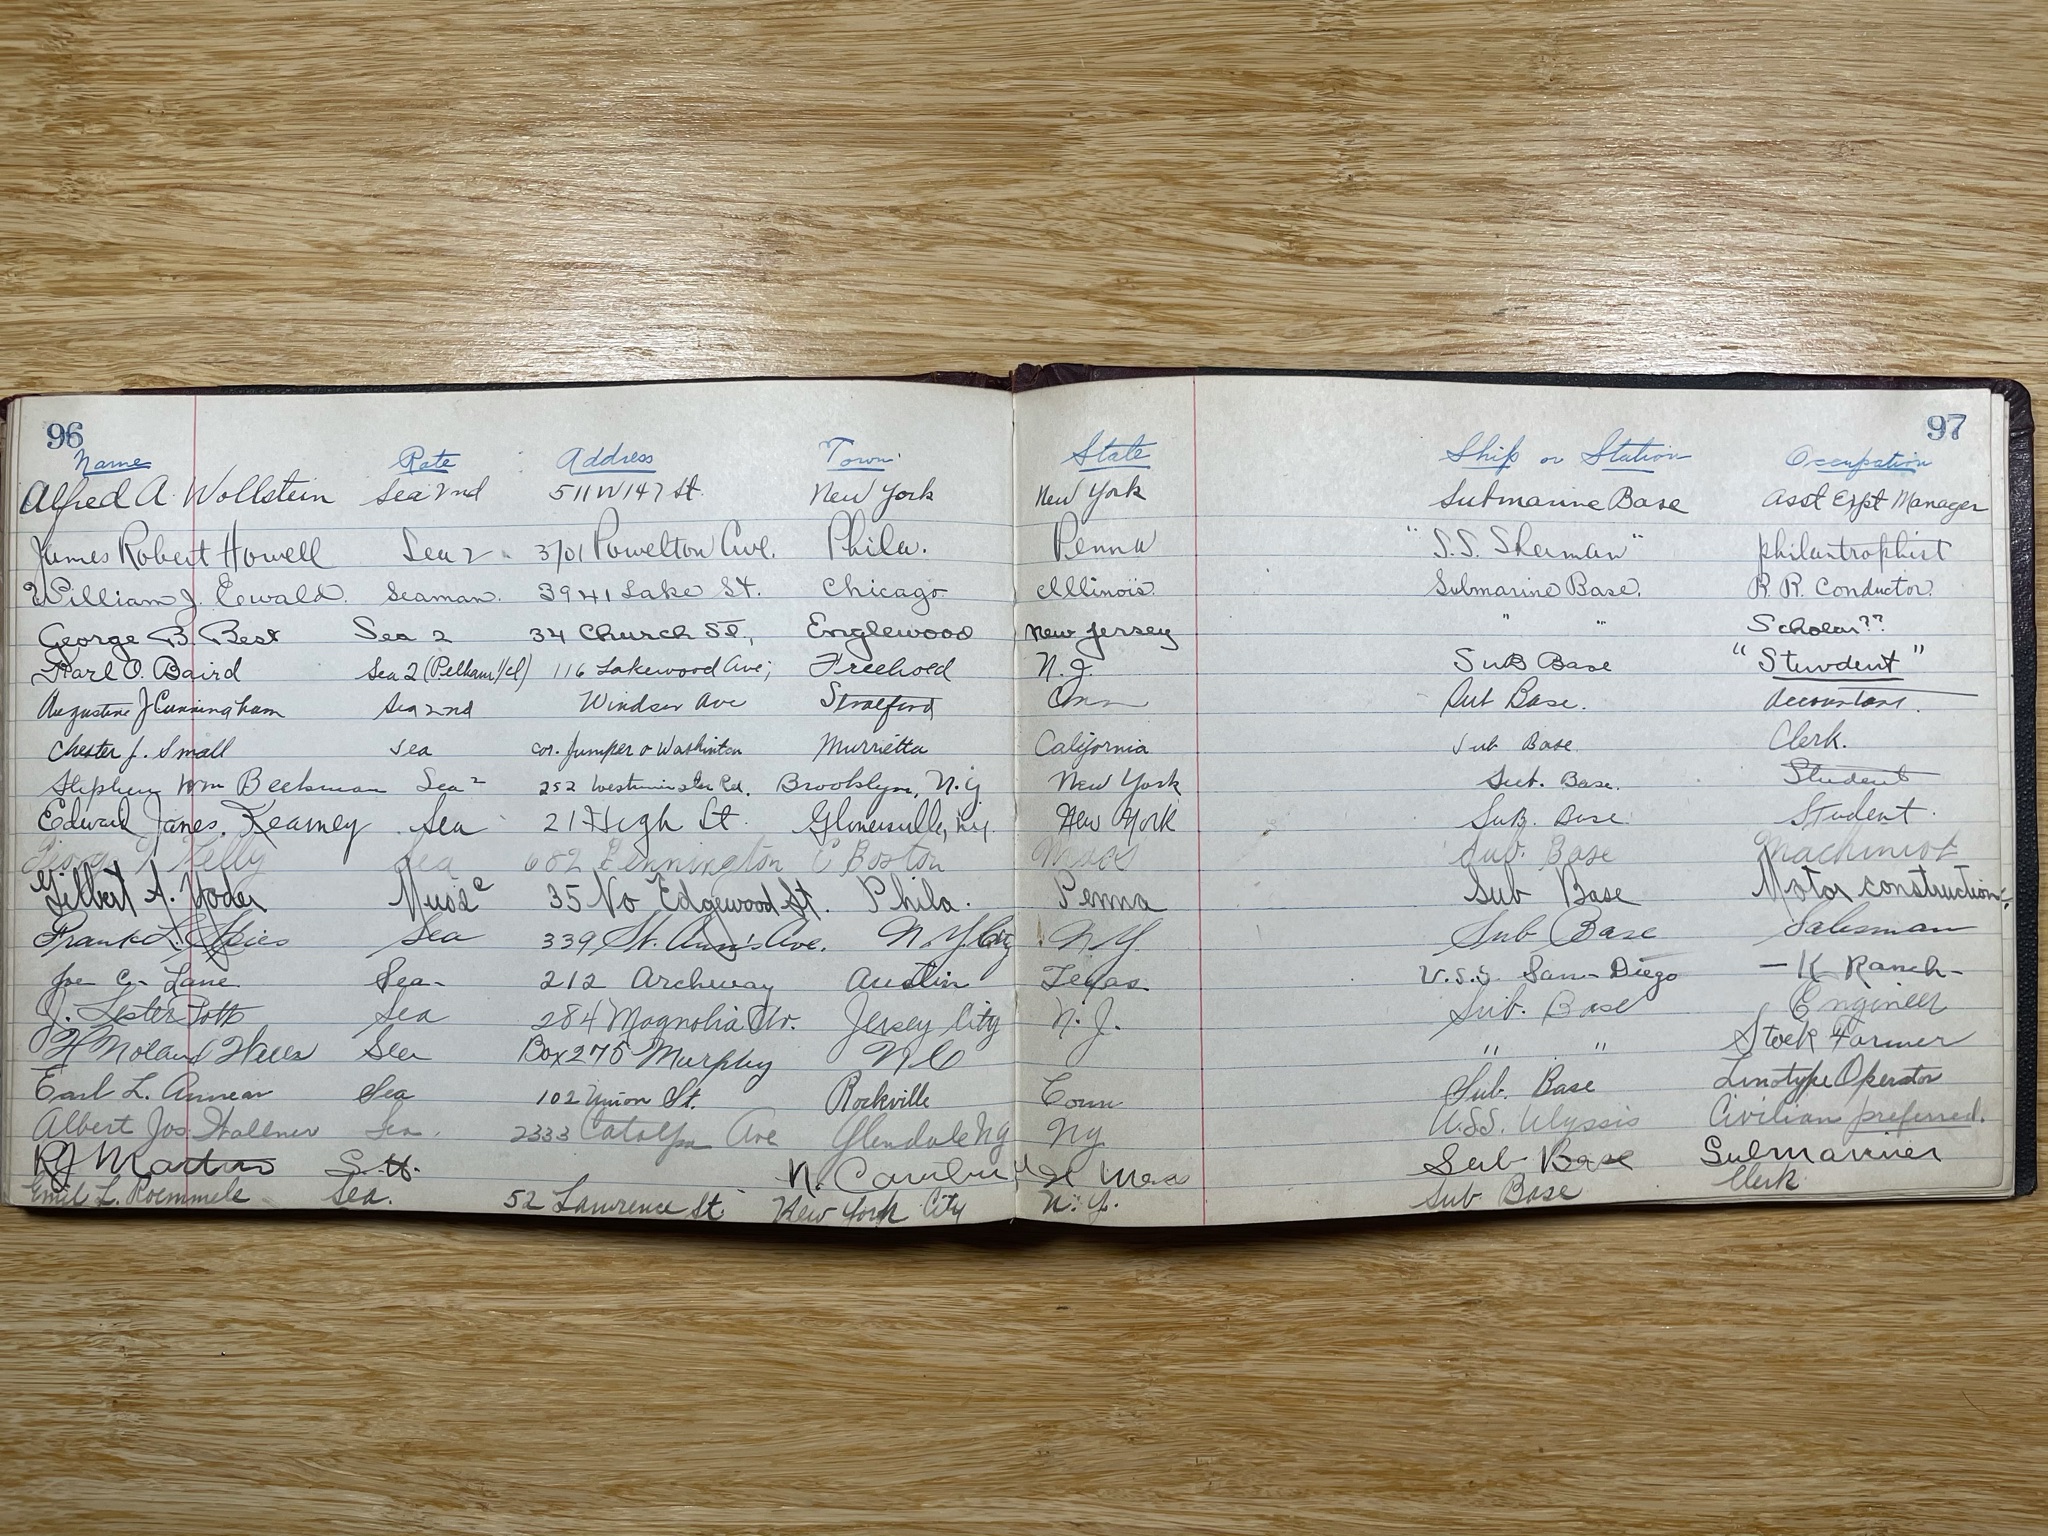 96 97
Name Rate Address Town State Ship or Station Occupation
Alfred A. Wollstein Sea 2nd 511 W 147 St. New York New York Submarine Base Asst Expt Manager
James Robert Howell Sea 2 3701 Powelton Ave. Phila. Penna "S.S. Sherman" philantrophist
William J. Ewald. Seaman. 3941 Lake St. Chicago Illinois. Submarine Base. R. R. Conductor.
George B. Best Sea 2 34 Church St, Englewood New Jersey " " Scholar??
Karl O. Baird Sea 2 116 Lakewood Ave; Freehold N.J. Sub Base "Stuudent"
Augustine J Cunningham Sea 2nd Windsor Ave Stratford Conn Sub Base. Accountant.
Chester J. Small Sea cor. Juniper & Washinton Murrietta California Sub Base Clerk.
Stephen Wm Beekman Sea 2 252 Westminster Rd. Brooklyn, N.Y. New York Sub. Base. Student
Edward James Kearney Sea 21 High St. Gloversville, N.Y. New York Sub. Base. Student.
George Kelly Sea 602 Bennington E Boston Mass Sub. Base Machinist
Gilbert A. Yoder 35 No Edgewood St. Phila. Penna Sub Base Motor construction
Frank L. Spies Sea 339 St. Ann's Ave. N.Y. City N.Y. Sub Base Salesman
Joe C. Lane Sea- 212 Archway Austin Texas. U.S.S. San-Diego -K Ranch-
J. Lester Toth Sea 284 Magnolia Av. Jersey City N.J. Sub. Base Engineer
Sea Box 275 Murphy N C " " Stock Farmer
Earl L. Annear Sea 102 Union St. Rockville Conn Sub. Base Linotype Operator
Albert Jos Wallner Sea. 2333 Catalpa Ave Glendale NY NY U.S.S. Ulyssis Civilian preferred.
RJ Martin N. Sub Base Submariner
Emil L. Roemmele Sea. 52 Lawrence St. New York City N.Y. Sub Base Clerk